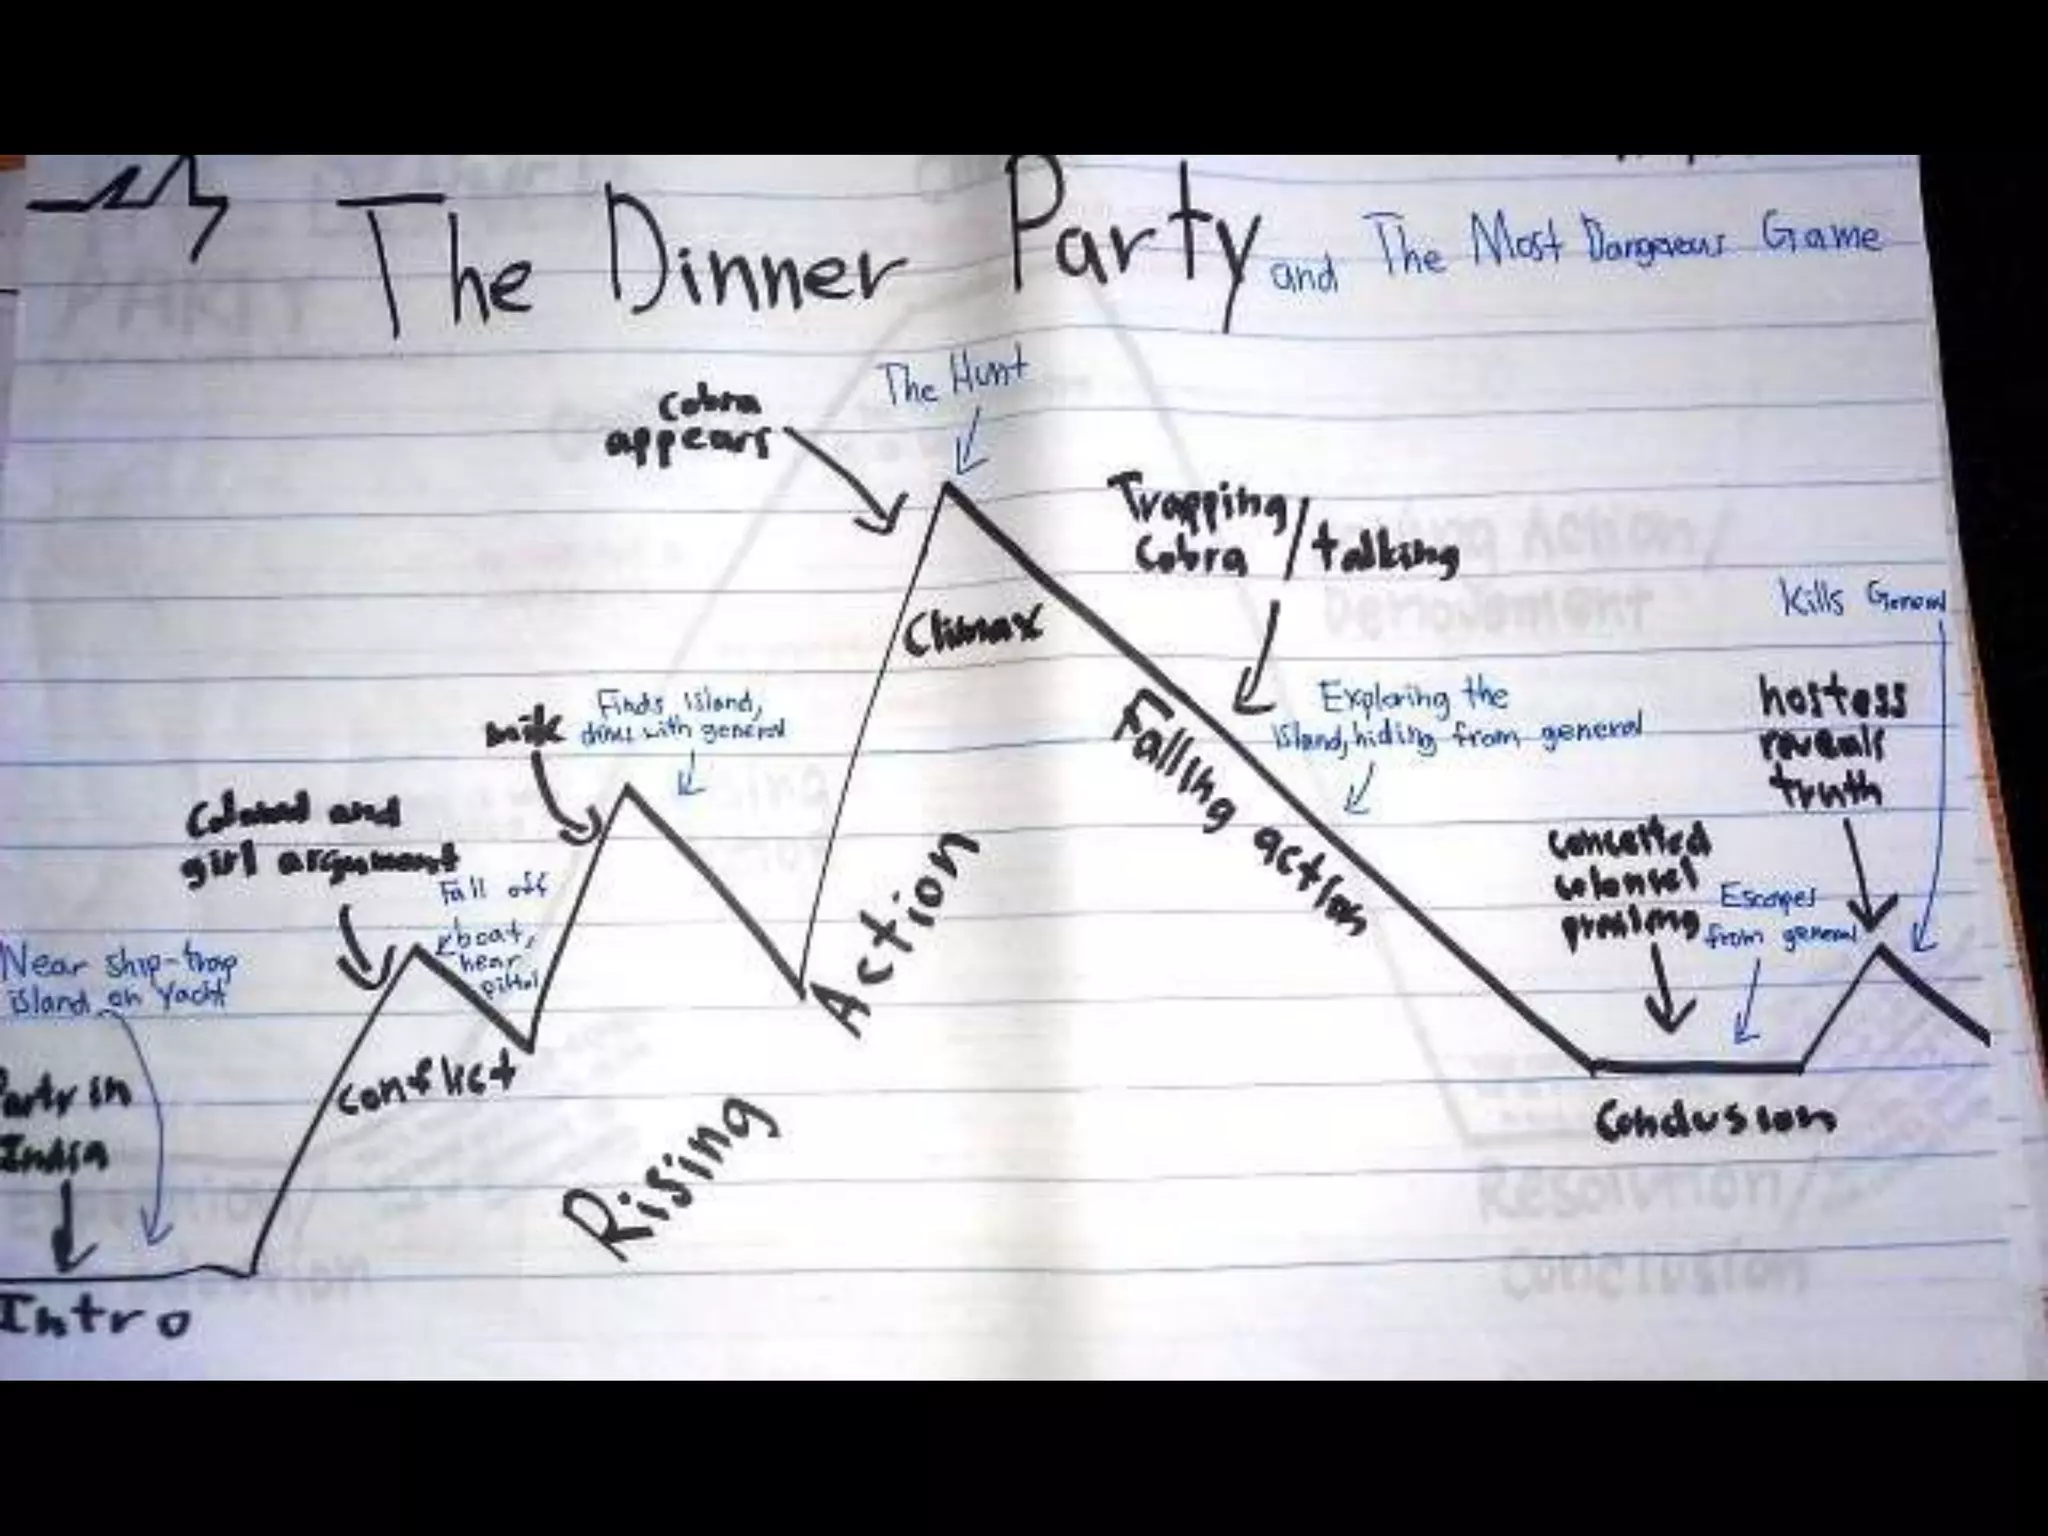 The Dinner Party and The Most Dangerous Game
The Hunt
Cobra
appears
Trapping
Cobra / talking
Climax
Kills General
hostess
reveals
truth
milk
Finds island,
dines with general
Exploring the
island, hiding from general
Falling action
Colonel and
girl argument
Fall off
boat,
hear
pistol
conceited
colonel
Escapes
from general
Near ship-trap
island on Yacht
Party in
India
conflict
Rising Action
Conclusion
Intro
Resolution/
Conclusion